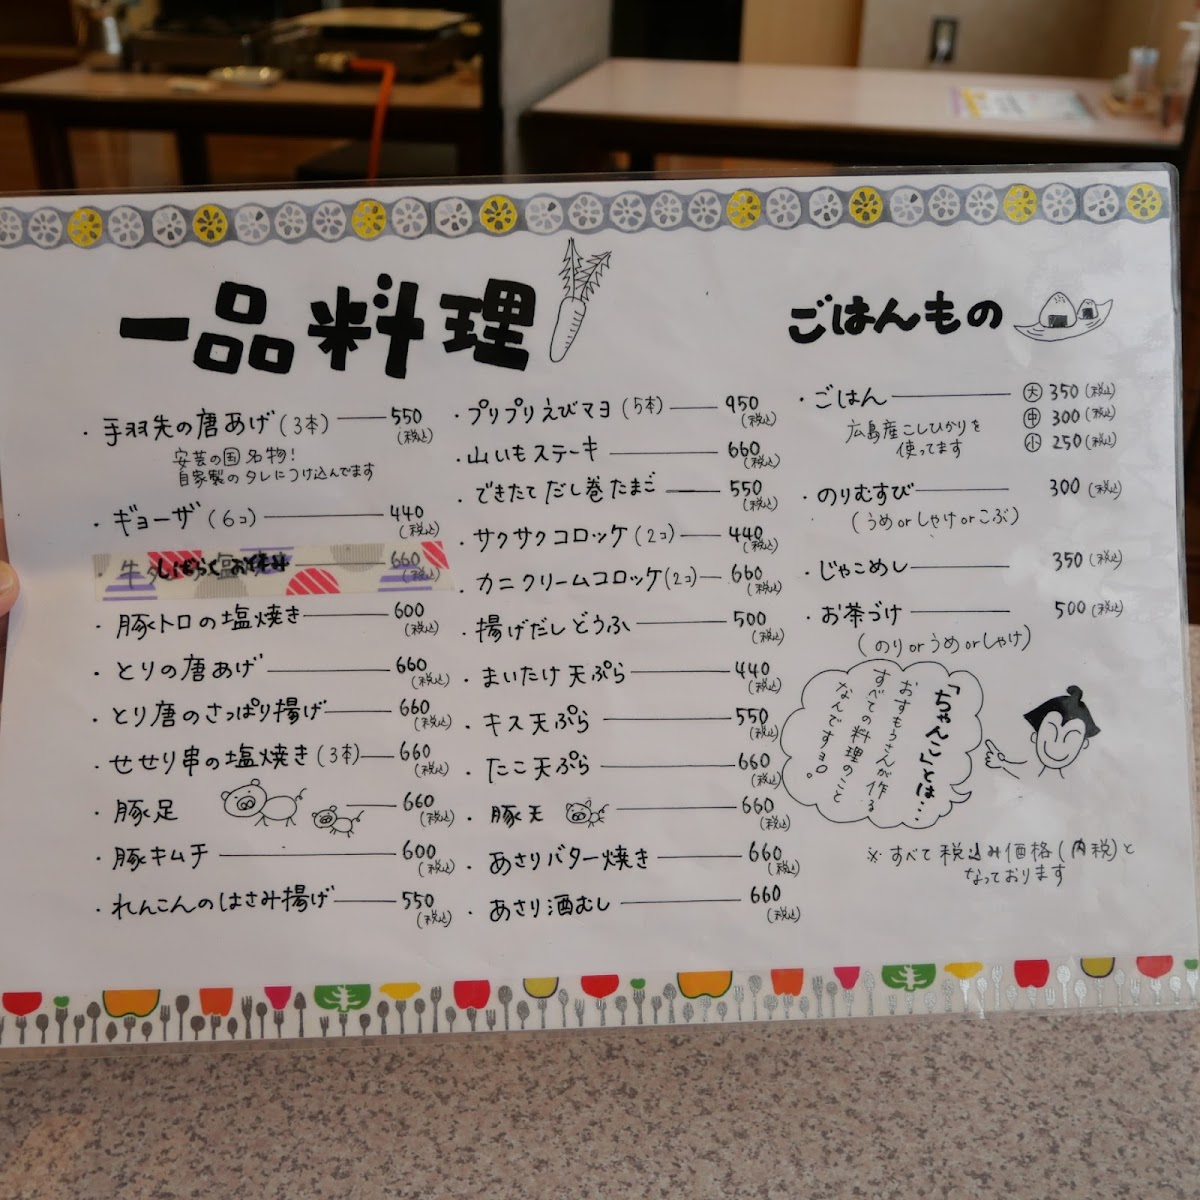 一品料理
・手羽先の唐あげ(3本) 550(税込)
安芸の国名物!
自家製のタレにつけ込んでます
・ギョーザ(6コ) 440(税込)
しばらくお休み 660(税込)
・豚トロの塩焼き 600(税込)
・とりの唐あげ 660(税込)
・とり唐のさっぱり揚げ 660(税込)
・せせり串の塩焼き(3本) 660(税込)
・豚足 660(税込)
・豚キムチ 600(税込)
・れんこんのはさみ揚げ 550(税込)
・プリプリえびマヨ(5本) 950(税込)
・山いもステーキ 660(税込)
・できたてだし巻たまご 550(税込)
・サクサクコロッケ(2コ) 440(税込)
・カニクリームコロッケ(2コ) 660(税込)
・揚げだしどうふ 500(税込)
・まいたけ天ぷら 440(税込)
・キス天ぷら 550(税込)
・たこ天ぷら 660(税込)
・豚天 660(税込)
・あさりバター焼き 660(税込)
・あさり酒むし 660(税込)
ごはんもの
・ごはん 大 350(税込)
中 300(税込)
小 250(税込)
広島産こしひかりを
使ってます
・のりむすび 300(税込)
(うめorしゃけorこぶ)
・じゃこめし 350(税込)
・お茶づけ 500(税込)
(のりorうめorしゃけ)
「ちゃんこ」とは…
おすもうさんが作る
すべての料理のこと
なんですョ。
※すべて税込み価格(内税)と
なっております